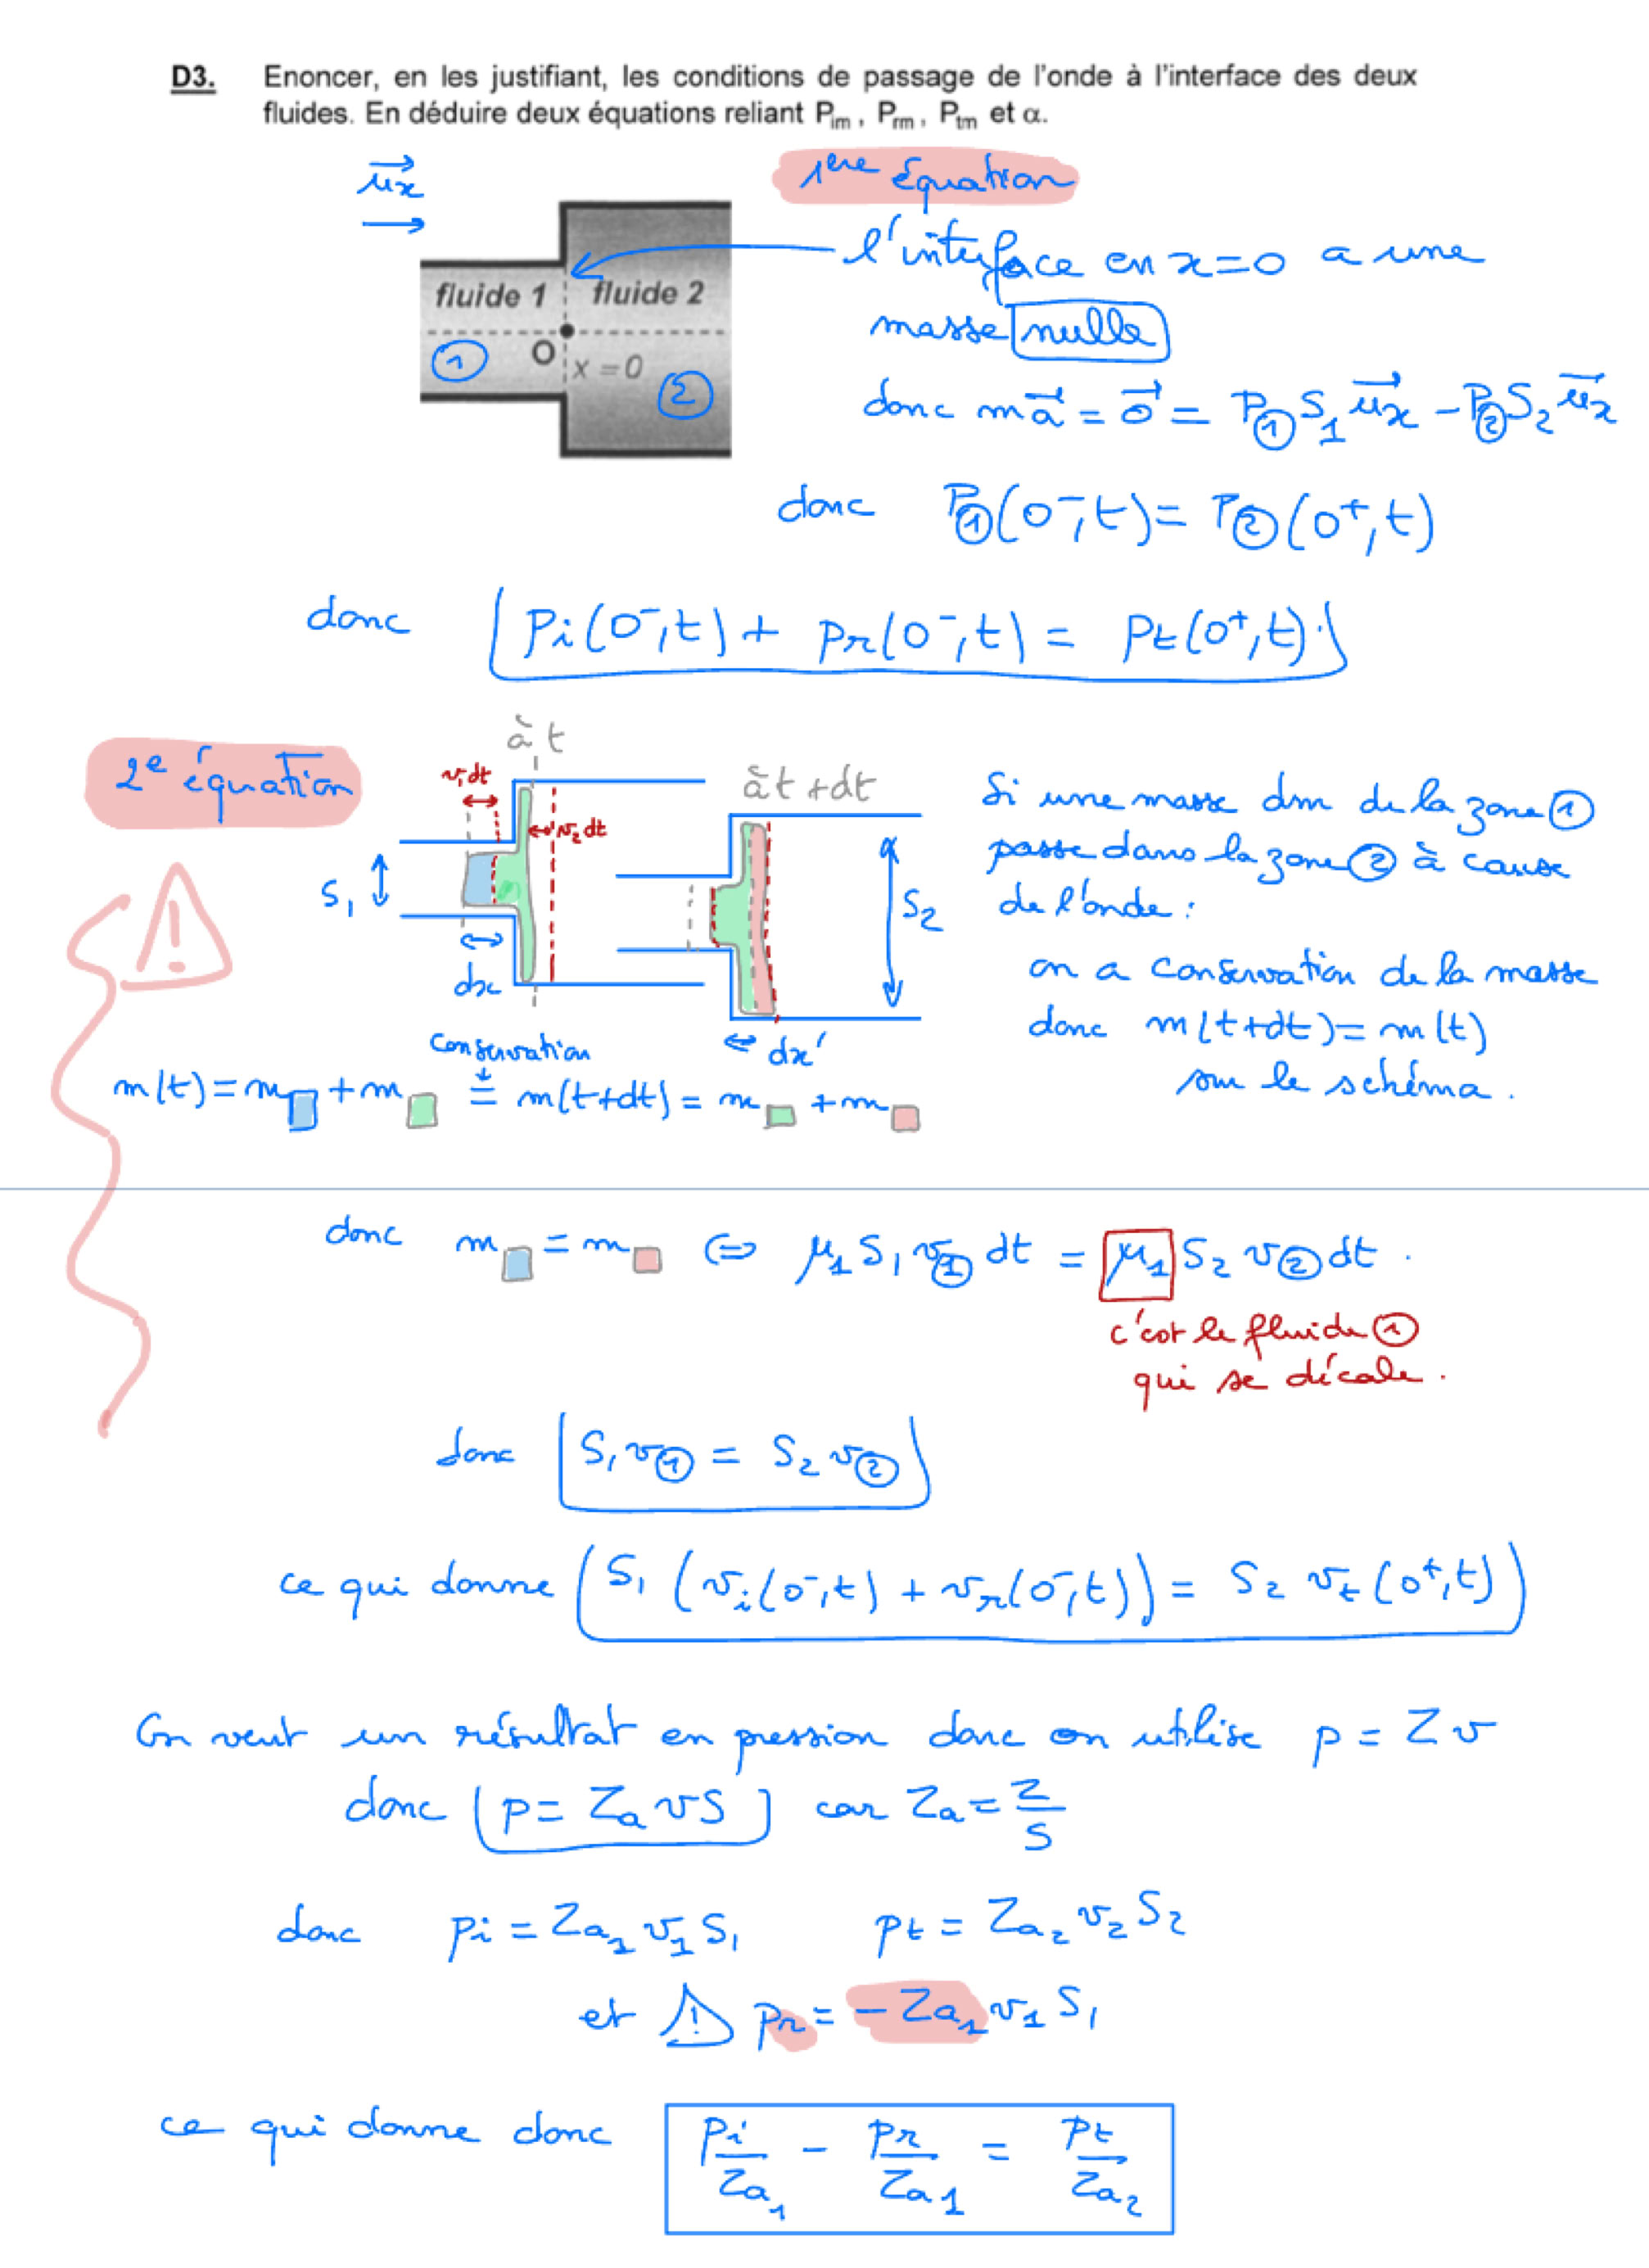 D3. Enoncer, en les justifiant, les conditions de passage de l'onde à l'interface des deux
fluides. En déduire deux équations reliant Pim, Prm, Ptm et α.
1ere équation
ux
l'interface en x=0 a une
fluide 1 fluide 2
masse nulle
① O x=0 ②
donc ma = 0 = P①S1 ux - P②S2 ux
donc P①(0⁻,t) = P②(0⁺,t)
donc pi(0⁻,t) + pr(0⁻,t) = pt(0⁺,t).
2e équation
à t
v1dt
v2dt
S1
dx
à t+dt
S2
dx'
Si une masse dm de la zone ①
passe dans la zone ② à cause
de l'onde :
on a conservation de la masse
donc m(t+dt) = m(t)
sur le schéma.
conservation
m(t) = m + m = m(t+dt) = m + m
donc m = m ⇔ μ1 S1 v① dt = μ1 S2 v② dt.
c'est le fluide ①
qui se décale.
donc S1 v① = S2 v②
ce qui donne S1 (vi(0⁻,t) + vr(0⁻,t)) = S2 vt(0⁺,t)
On veut un résultat en pression donc on utilise p = Z v
donc p = Za v S car Za = Z/S
donc pi = Za1 v1 S1 pt = Za2 v2 S2
et ! pr = - Za1 v1 S1
ce qui donne donc pi/Za1 - pr/Za1 = pt/Za2